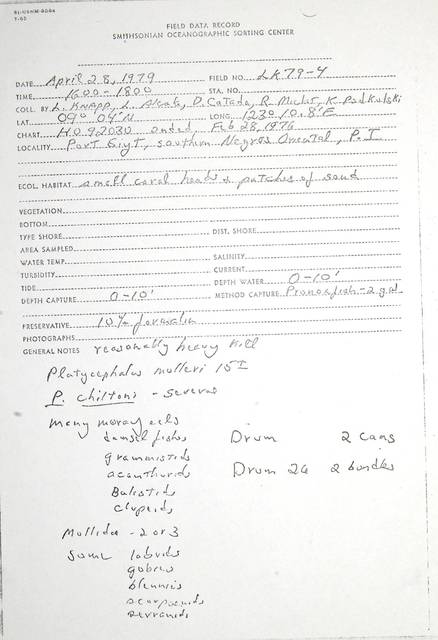 SI-USNM-200A
7-65
FIELD DATA RECORD
SMITHSONIAN OCEANOGRAPHIC SORTING CENTER
DATE April 28, 1979 FIELD NO. LK79-4
TIME 1600-1800 STA. NO.
COLL. BY L. Knapp, L. Alcala, D. Catada, R. K. Podkulski
LAT 09° 04'N LONG. 123° 10.8'E
CHART H.O. 92030 ended, Feb 28, 1976
LOCALITY Port Siyt, southern Negros Oriental, P.I.
ECOL. HABITAT small coral heads & patches of sand
VEGETATION
BOTTOM
TYPE SHORE DIST. SHORE
AREA SAMPLED
WATER TEMP. SALINITY
TURBIDITY CURRENT
TIDE DEPTH WATER 0-10'
DEPTH CAPTURE 0-10' METHOD CAPTURE Pronoxfish-2 gal
PRESERVATIVE 10% formalin
PHOTOGRAPHS
GENERAL NOTES reasonally heavy kill
Platycephalus 15
P. chiltoni - several
many moray eels
damsel fishes Drum 2 cans
grammistids
acanthurids Drum 26 2 bundles
Balistids
clupeids
- 2 or 3
some labrids
gobies
blennies
scorpaenids
serranids